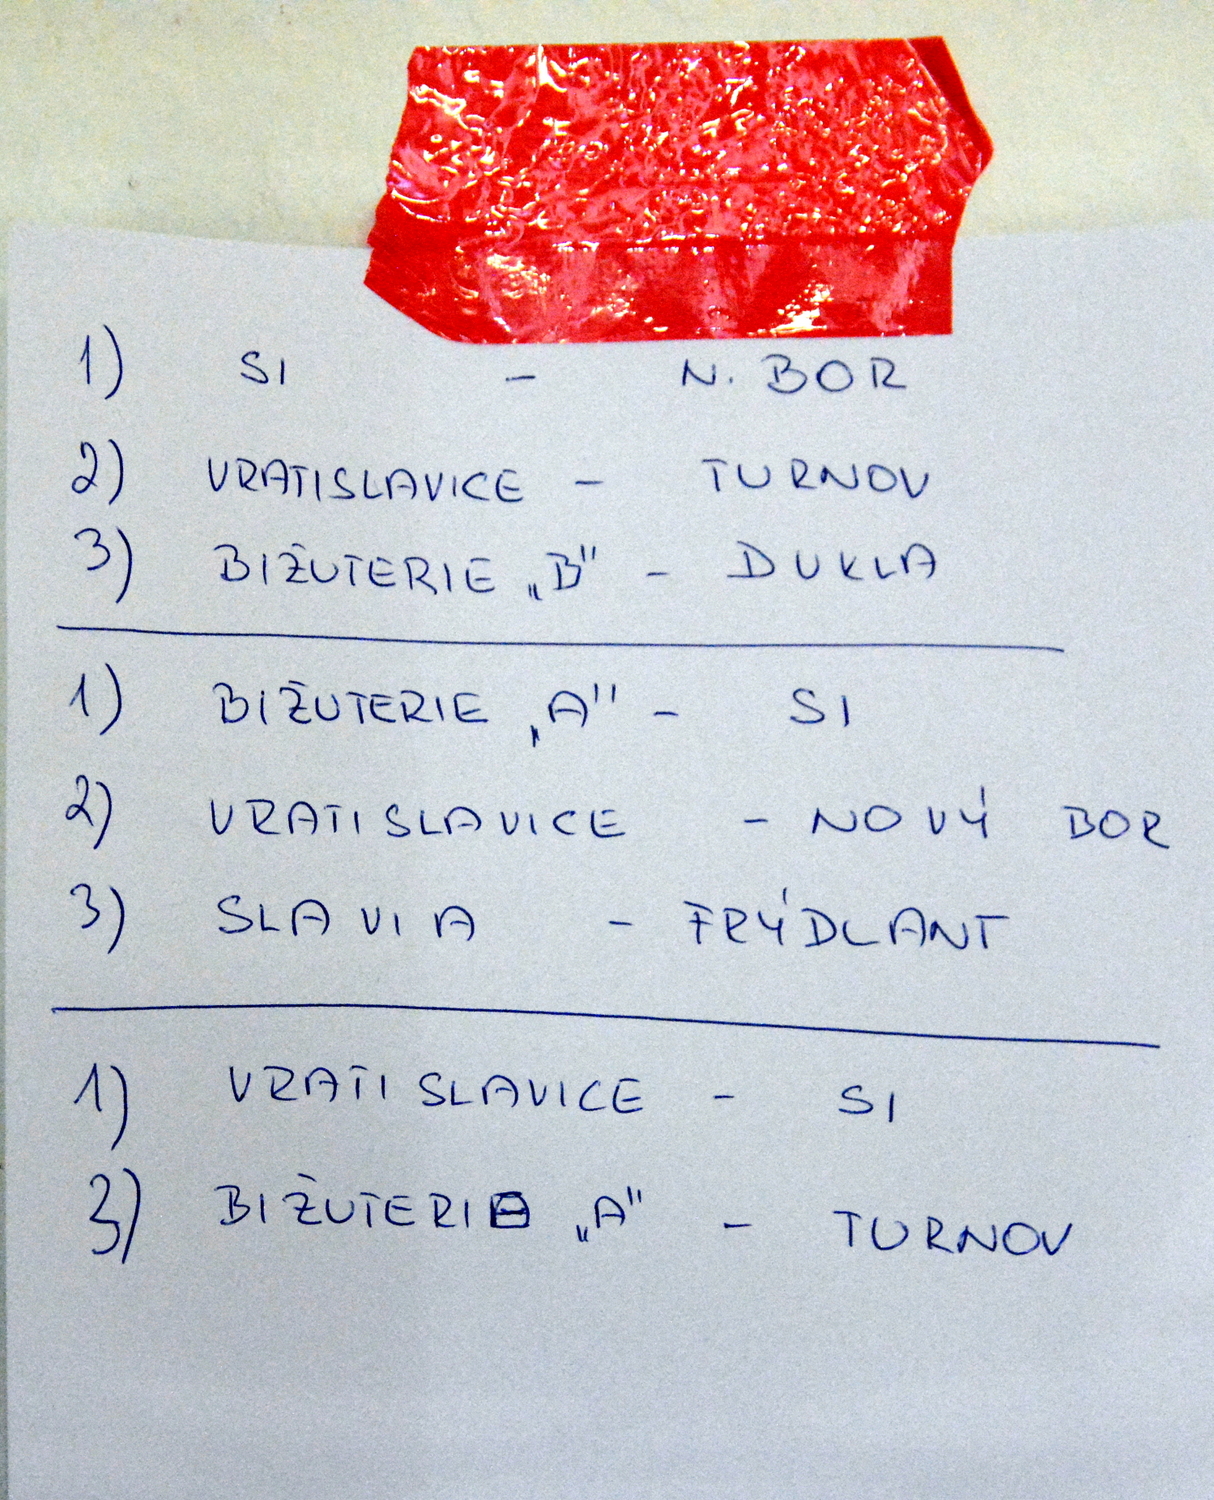 1) SI - N. BOR
2) VRATISLAVICE - TURNOV
3) BIŽUTERIE „B" - DUKLA
1) BIŽUTERIE „A" - SI
2) VRATISLAVICE - NOVÝ BOR
3) SLAVIA - FRÝDLANT
1) VRATISLAVICE - SI
3) BIŽUTERIE „A" - TURNOV